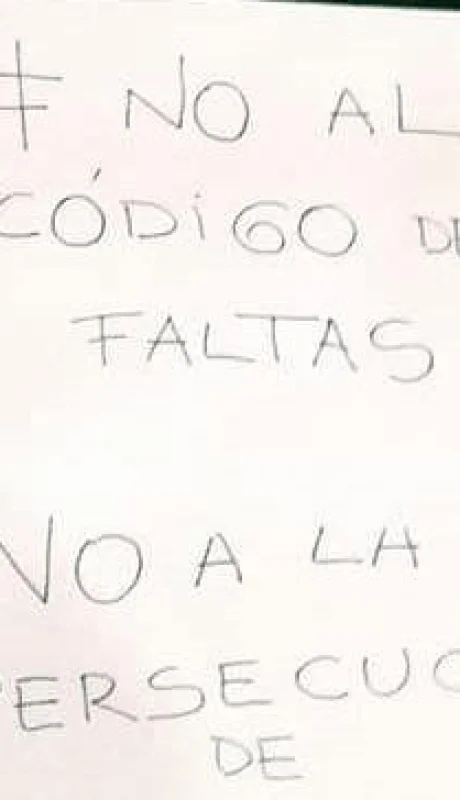 # NO AL
CÓDiGO DE
FALTAS
NO A LA
PERSECUC
DE